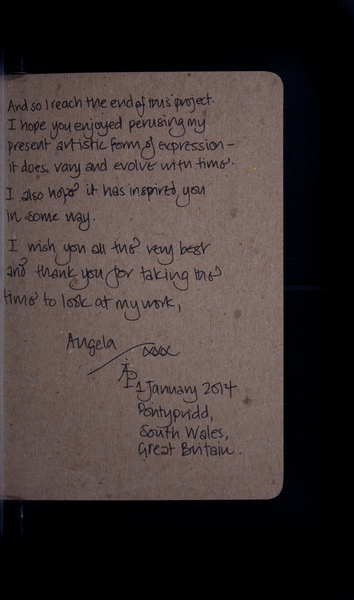 And so I reach the end of this project.
I hope you enjoyed perusing my
present artistic form of expression –
it does vary and evolve with time.
I also hope it has inspired you
in some way.
I wish you all the very best
and thank you for taking the
time to look at my work,
Angela xxx
AP
1 January 2014
Pontypridd,
South Wales,
Great Britain.